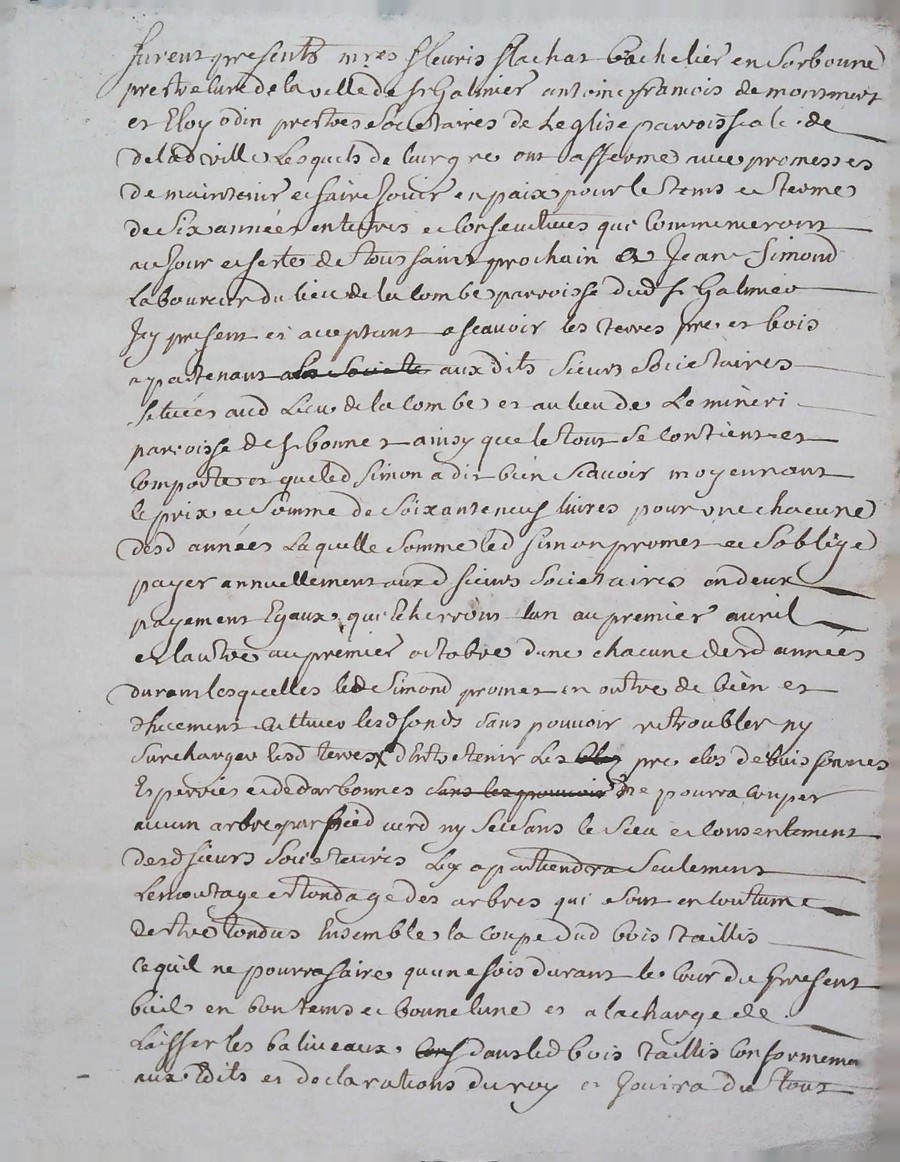 furent presents mres fleuris flachat bachelier en sorbonne
prestre curé de la ville de st Galmier antoine francois de montmert
et Eloy odin prestres societaires de Leglise parroissiale de
delad ville Lesquels de leur gre ont afferme avec promesses
de maintenir et faire jouir en paix pour le tems et terme
de Six années entieres et consecutives qui Commenceront
au Jour et feste de toussaint prochain a Jean Simond
Laboureur du lieu de la Combe parroisse dud st Galmier
Icy present et acceptant a scavoir les terres pre et bois
apartenant a la Societe aux dits Sieurs Societaires
Situées aud Lieu de la Combe et au lieu de Le mineri
parroisse de st bonnet ainsy que le tout se contient et
Comporte et que led Simon a dit bien Scavoir moyennant
le prix et Somme de Soixante neuf livres pour une chacune
desd années Laquelle Somme led simon promet et Soblige
payer annuellement auxd sieurs Societaires en deux
payement Egaux qui Echerront lun au premier avril
et lautre au premier octobre dune chacune desd années
durant lesquelles led Simond promet en outre de bien et
dhuement Cultiver lesd fonds sans pouvoir retroubler ny
Surcharger lesd terres dentretenir Les pre clos de buissonnes
Esperries et de darbonnes sans les pouvoir ne pourra Couper
aucun arbre par pied verd ny Sec sans le Sceu et Consentement
desd sieurs Societaires Luy apartiendra Seulement
Lemoutage et tondage des arbres qui sont en Coutume
destre tondus Ensemble la coupe dud bois taillis
ce quil ne pourra faire qu une fois durant le Cour du present
bail en bon tems et bonne lune et a la charge de
Laisser les baliveaux dans led bois taillis Conformement
aux Edits et declarations du roy et Jouira du tout